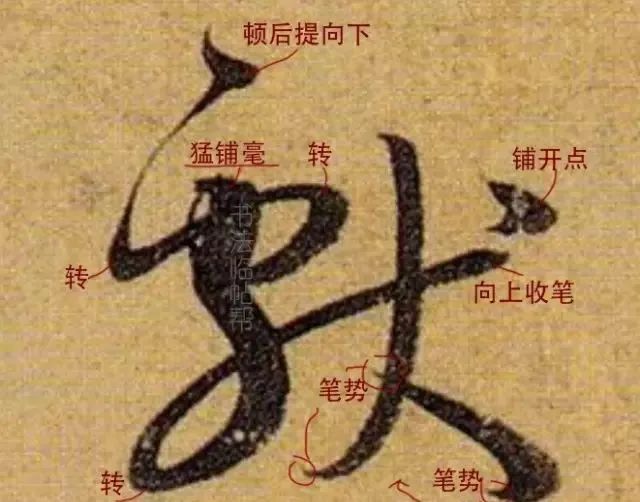 顿后提向下
猛铺毫
转
铺开点
转
向上收笔
笔势
转
笔势
书法临帖帮